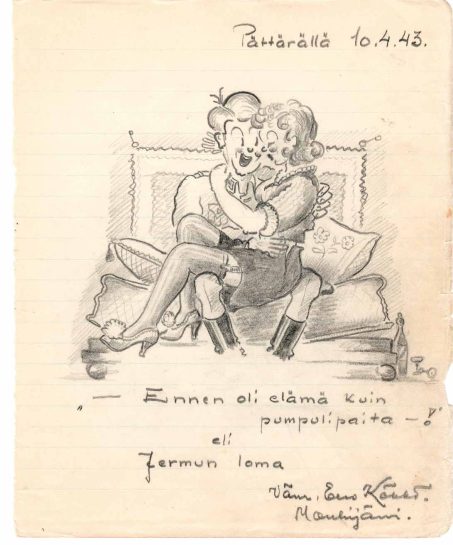 Pättärällä 10.4.43.
„— Ennen oli elämä kuin
pumpulipaita —"!
eli
Jermun loma
Vänr. Eero